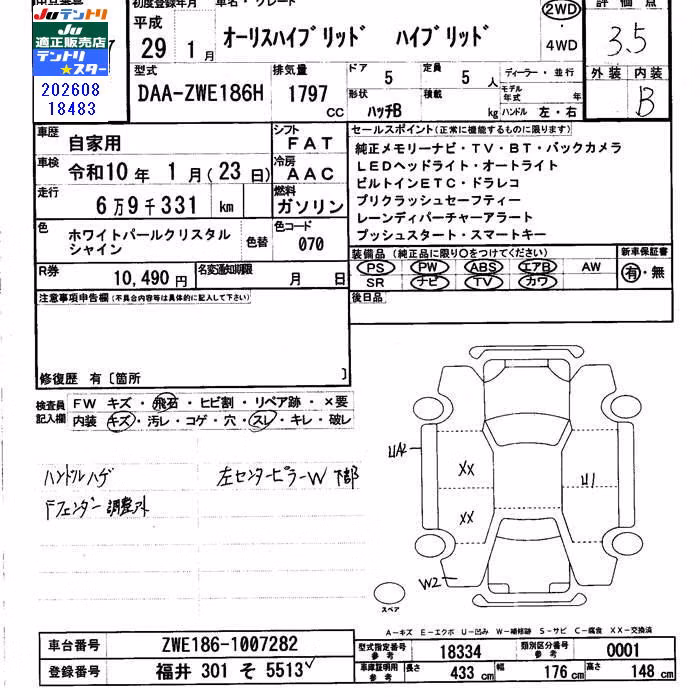 Juテントリ
Ju
適正販売店
テントリ
★スター
202608
18483
初度登録年月
平成
29 1月
車名・グレード
オーリスハイブリッド ハイブリッド
2WD
4WD
評価点
3.5
外装 内装
B
型式
DAA-ZWE186H
排気量
1797
cc
ドア
5
定員
5 人
形状
ハッチB
積載
kg
ディーラー・並行
モデル年式 年
ハンドル 左・右
車歴
自家用
シフト
FAT
車検
令和10年 1月(23日)
冷房
AAC
走行
6万9千331 km
燃料
ガソリン
色
ホワイトパールクリスタル
シャイン
色替
色コード
070
R券
10,490円
名変通知期限
月 日
セールスポイント(正常に機能するものに限ります)
純正メモリーナビ・TV・BT・バックカメラ
LEDヘッドライト・オートライト
ビルトインETC・ドラレコ
プリクラッシュセーフティー
レーンディパーチャーアラート
プッシュスタート・スマートキー
装備品(純正品に限り○をつけてください)
PS PW ABS エアB AW
SR ナビ TV カワ
新車保証書
有・無
後日品
注意事項申告欄(不具合内容等は具体的に記入して下さい)
修復歴 有〔箇所 〕
検査員記入欄
FW キズ・飛石・ヒビ割・リペア跡・×要
内装 キズ・汚レ・コゲ・穴・スレ・キレ・破レ
ハンドルハゲ
左センターピラーW 下部
Fフェンダー調整アト
UA2
XX
XX
U1
W2
スペア
A-キズ E-エクボ U-凹み W-補修跡 S-サビ C-腐食 XX-交換済
車台番号
ZWE186-1007282
登録番号
福井 301 そ 5513
型式指定番号
参考
18334
類別区分番号
参考
0001
車庫証明用
参考
長さ
433 cm
幅
176 cm
高さ
148 cm